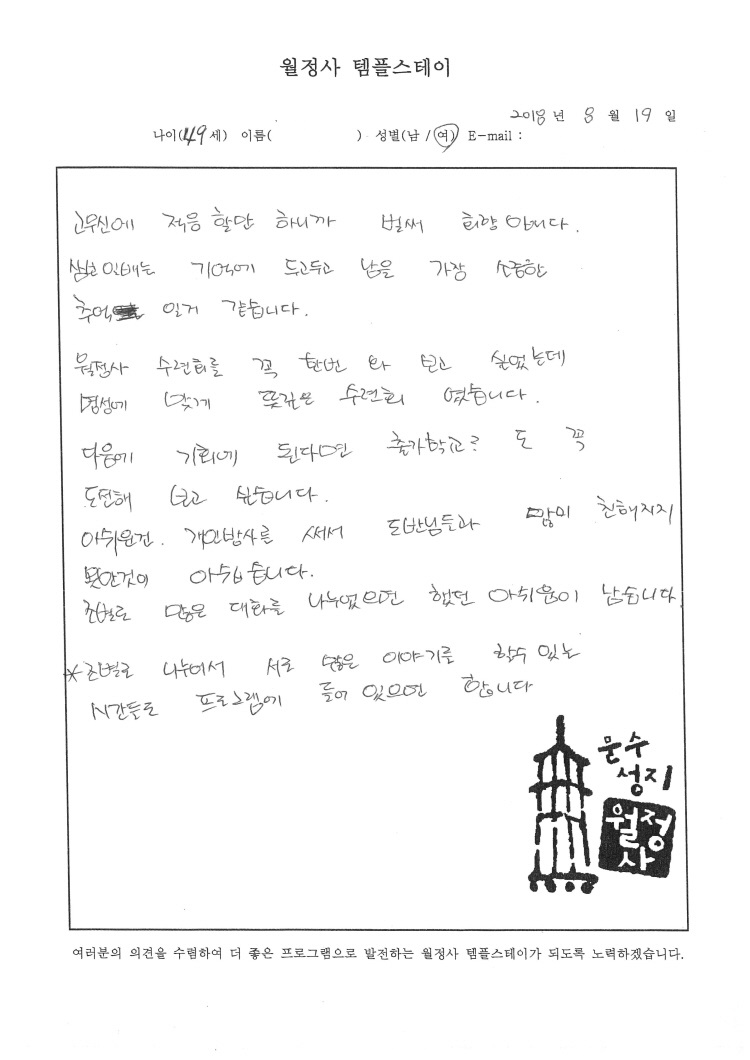 월정사 템플스테이
2018 년 8 월 19 일
나이(49세) 이름( ) 성별(남 / 여) E-mail :
고무신에 적응 할만 하니까 벌써 회향 입니다.
삼보일배는 기억에 두고두고 남을 가장 소중한
추억 일거 같습니다.
월정사 수련회를 꼭 한번 와 보고 싶었는데
명성에 맞게 뜻깊은 수련회 였습니다.
다음에 기회에 된다면 출가학교? 도 꼭
도전해 보고 싶습니다.
아쉬운건. 개인방사를 써서 도반님들과 많이 친해지지
못한것이 아쉽습니다.
조별로 많은 대화를 나누었으면 했던 아쉬움이 남습니다.
* 조별로 나누어서 서로 많은 이야기를 할수 있는
시간들로 프로그램에 들어 있으면 합니다
문수
성지
월정
사
여러분의 의견을 수렴하여 더 좋은 프로그램으로 발전하는 월정사 템플스테이가 되도록 노력하겠습니다.